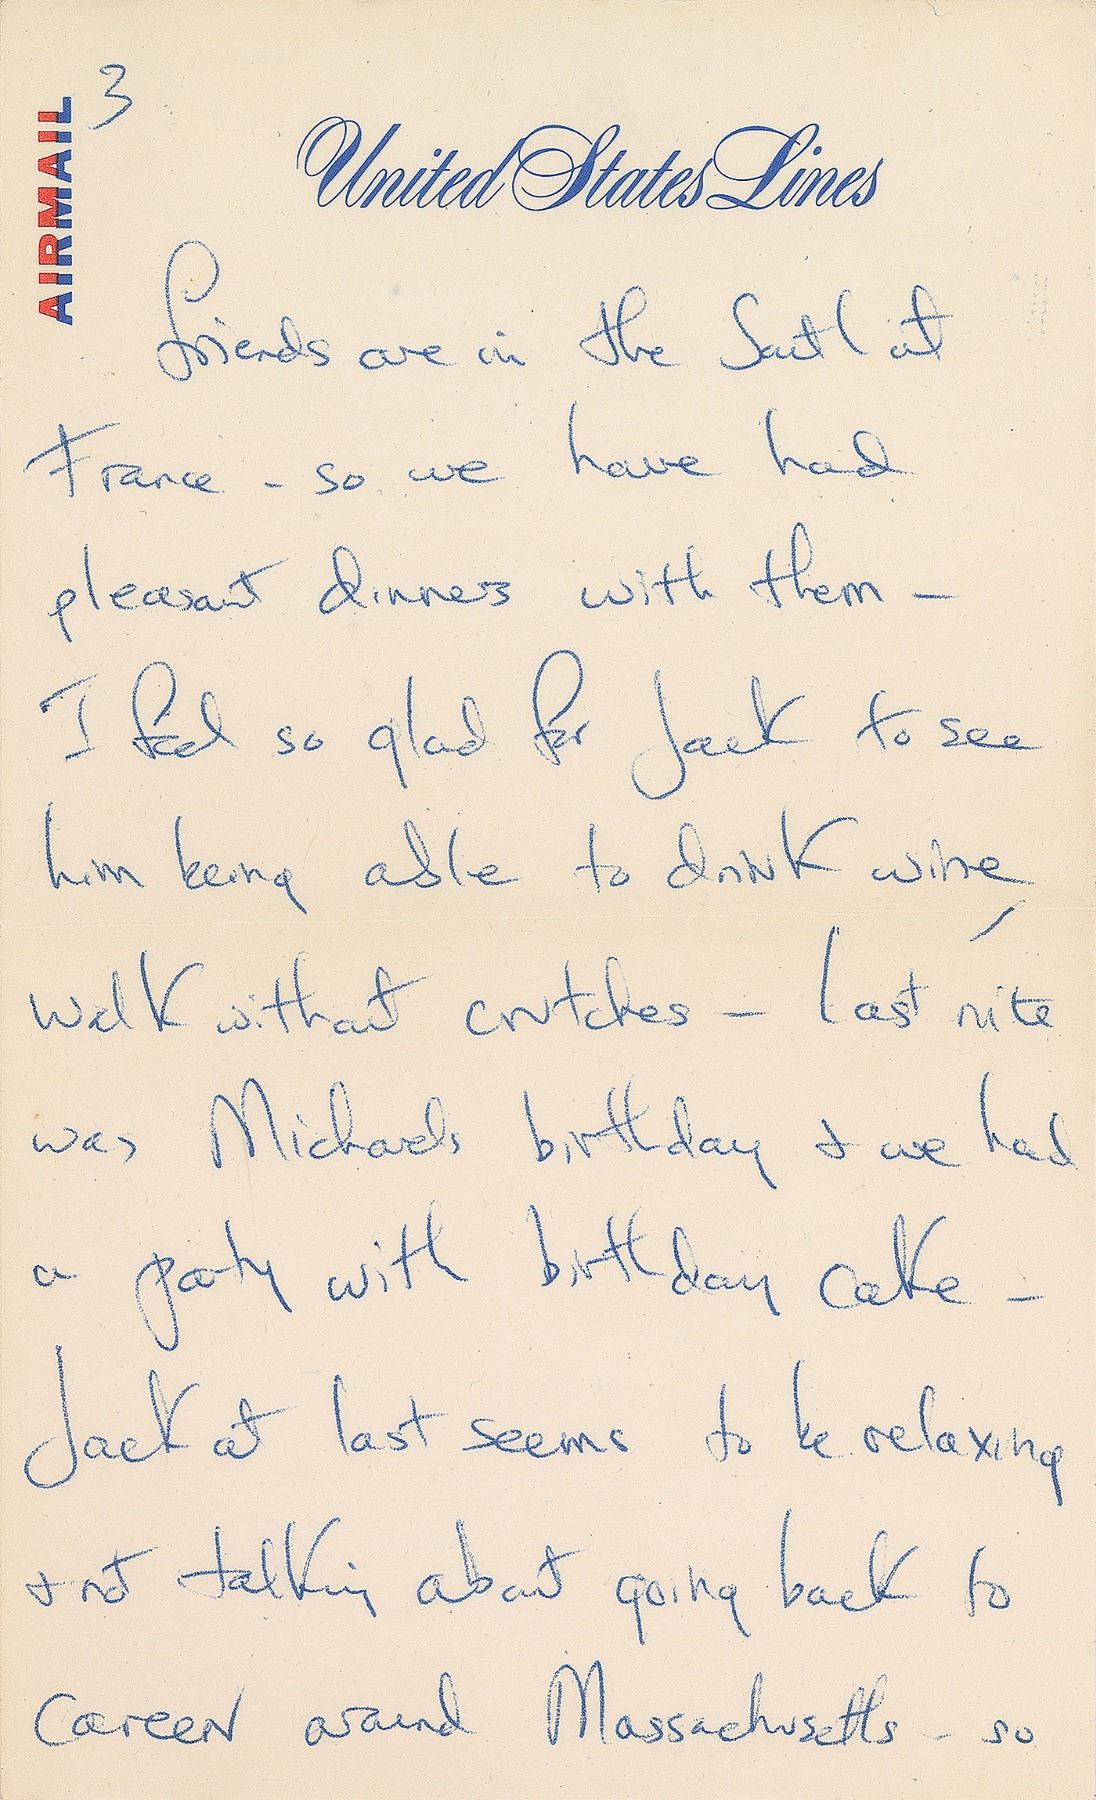 3
AIRMAIL
United States Lines
friends are in the South of
France - so we have had
pleasant dinners with them -
I feel so glad for Jack to see
him being able to drink wine,
walk without crutches - Last nite
was Michaels birthday + we had
a party with birthday cake -
Jack at last seems to be relaxing
+ not talking about going back to
Careen around Massachusetts - so